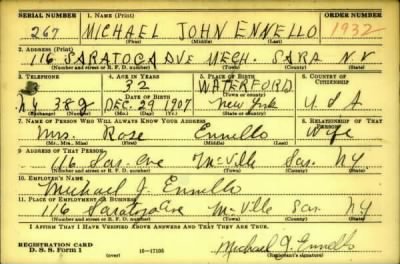 SERIAL NUMBER 1. NAME (Print) ORDER NUMBER
267 MICHAEL JOHN ENNELLO 1932
(First) (Middle) (Last)
2. ADDRESS (Print)
116 SARATOGA AVE MECH. SARA N Y
(Number and street or R. F. D. number) (Town) (County) (State)
3. TELEPHONE 4. AGE IN YEARS 5. PLACE OF BIRTH 6. COUNTRY OF CITIZENSHIP
32 WATERFORD
DATE OF BIRTH (Town or county)
389 DEC. 29 1907 New York U S A
(Exchange) (Number) (Mo.) (Day) (Yr.) (State or country)
7. NAME OF PERSON WHO WILL ALWAYS KNOW YOUR ADDRESS 8. RELATIONSHIP OF THAT PERSON
Mrs. Rose Ennello Wife
(Mr., Mrs., Miss) (First) (Middle) (Last)
9. ADDRESS OF THAT PERSON
116 Sar. Ave McVille Sar. N.Y.
(Number and street or R. F. D. number) (Town) (County) (State)
10. EMPLOYER'S NAME
Michael J. Ennello
11. PLACE OF EMPLOYMENT OR BUSINESS
116 Saratoga Ave McVille Sar. N.Y.
(Number and street or R. F. D. number) (Town) (County) (State)
I AFFIRM THAT I HAVE VERIFIED ABOVE ANSWERS AND THAT THEY ARE TRUE.
REGISTRATION CARD
D. S. S. Form 1 16-17105 Michael J. Ennello